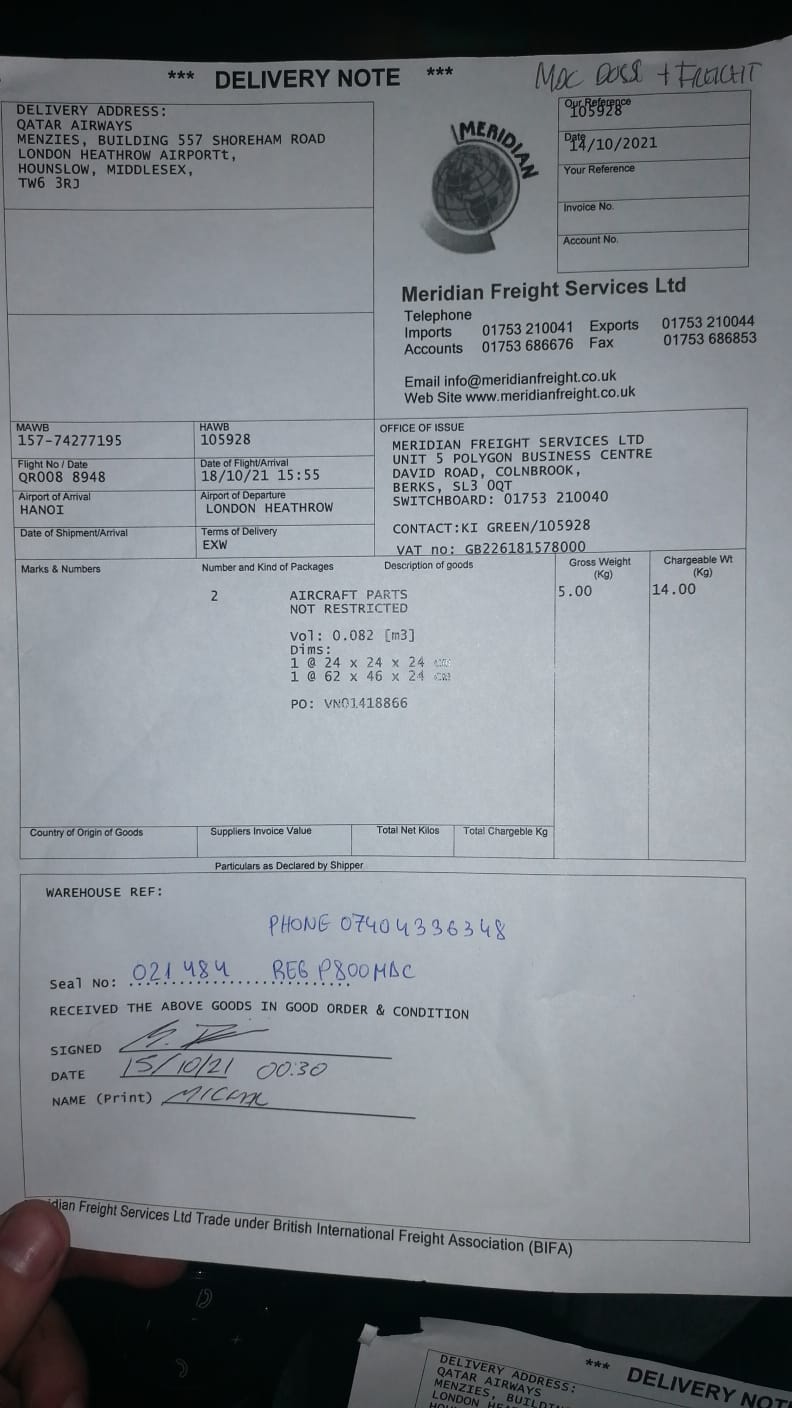 *** DELIVERY NOTE ***
MDC DOSS + FREIGHT
DELIVERY ADDRESS:
QATAR AIRWAYS
MENZIES, BUILDING 557 SHOREHAM ROAD
LONDON HEATHROW AIRPORTt,
HOUNSLOW, MIDDLESEX,
TW6 3RJ
MERIDIAN
Our Reference
105928
Date
14/10/2021
Your Reference
Invoice No.
Account No.
Meridian Freight Services Ltd
Telephone
Imports 01753 210041 Exports 01753 210044
Accounts 01753 686676 Fax 01753 686853
Email info@meridianfreight.co.uk
Web Site www.meridianfreight.co.uk
MAWB
157-74277195
HAWB
105928
Flight No / Date
QR008 8948
Date of Flight/Arrival
18/10/21 15:55
Airport of Arrival
HANOI
Airport of Departure
LONDON HEATHROW
Date of Shipment/Arrival
Terms of Delivery
EXW
OFFICE OF ISSUE
MERIDIAN FREIGHT SERVICES LTD
UNIT 5 POLYGON BUSINESS CENTRE
DAVID ROAD, COLNBROOK,
BERKS, SL3 0QT
SWITCHBOARD: 01753 210040
CONTACT:KI GREEN/105928
VAT no: GB226181578000
Marks & Numbers Number and Kind of Packages Description of goods Gross Weight (Kg) Chargeable Wt (Kg)
2 AIRCRAFT PARTS 5.00 14.00
NOT RESTRICTED
Vol: 0.082 [m3]
Dims:
1 @ 24 x 24 x 24 cm
1 @ 62 x 46 x 24 cm
PO: VN01418866
Country of Origin of Goods Suppliers Invoice Value Total Net Kilos Total Chargeble Kg
Particulars as Declared by Shipper
WAREHOUSE REF:
PHONE 07404336348
Seal No: 021484 REG P800MDC
RECEIVED THE ABOVE GOODS IN GOOD ORDER & CONDITION
SIGNED
DATE 15/10/21 00:30
NAME (Print) MICHAL
idian Freight Services Ltd Trade under British International Freight Association (BIFA)
*** DELIVERY NOT
DELIVERY ADDRESS:
QATAR AIRWAYS
MENZIES, BUILDIN
LONDON HE